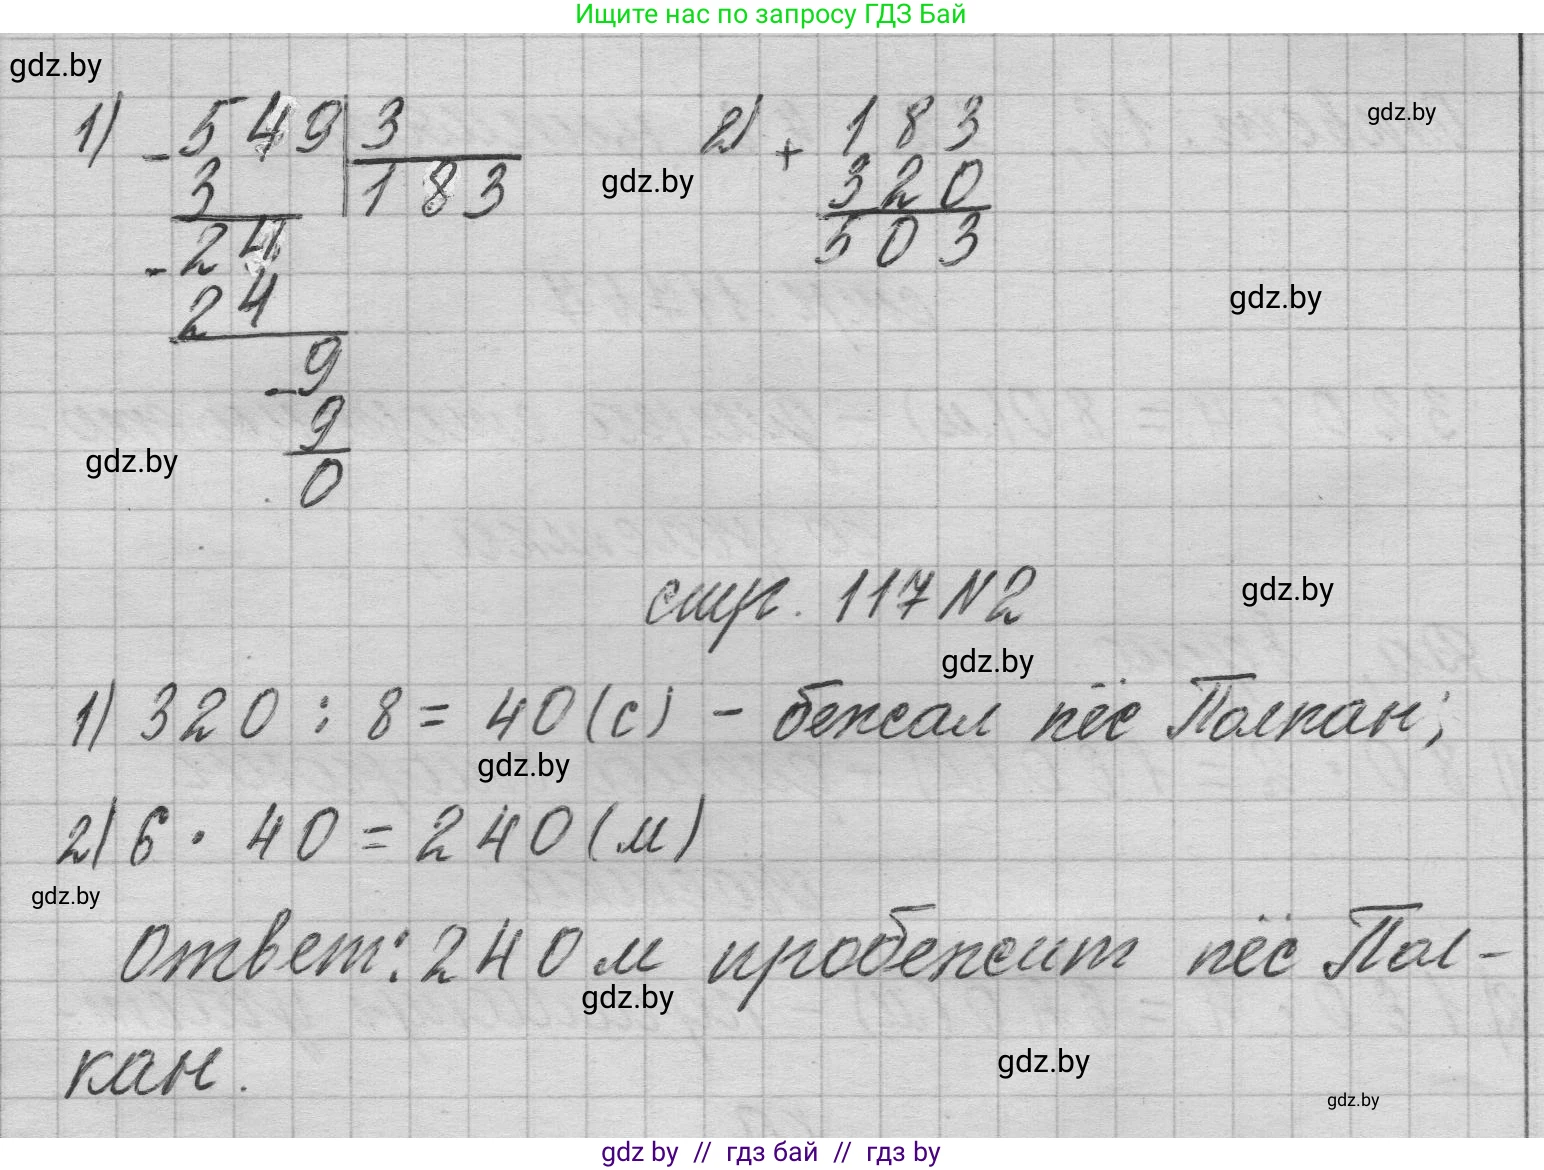 Ищите нас по запросу ГДЗ Бай
gdz.by
1) - 549 | 3
3 183
- 24
24
- 9
9
0
2) + 183
320
503
gdz.by
gdz.by
gdz.by
gdz.by
стр. 117 N 2
gdz.by
gdz.by
1) 320 : 8 = 40 (с) - бежал пёс Полкан;
gdz.by
2) 6 · 40 = 240 (м)
gdz.by
Ответ: 240 м пробежит пёс Пол-
gdz.by
кан.
gdz.by
gdz.by
gdz by // гдз бай // гдз by